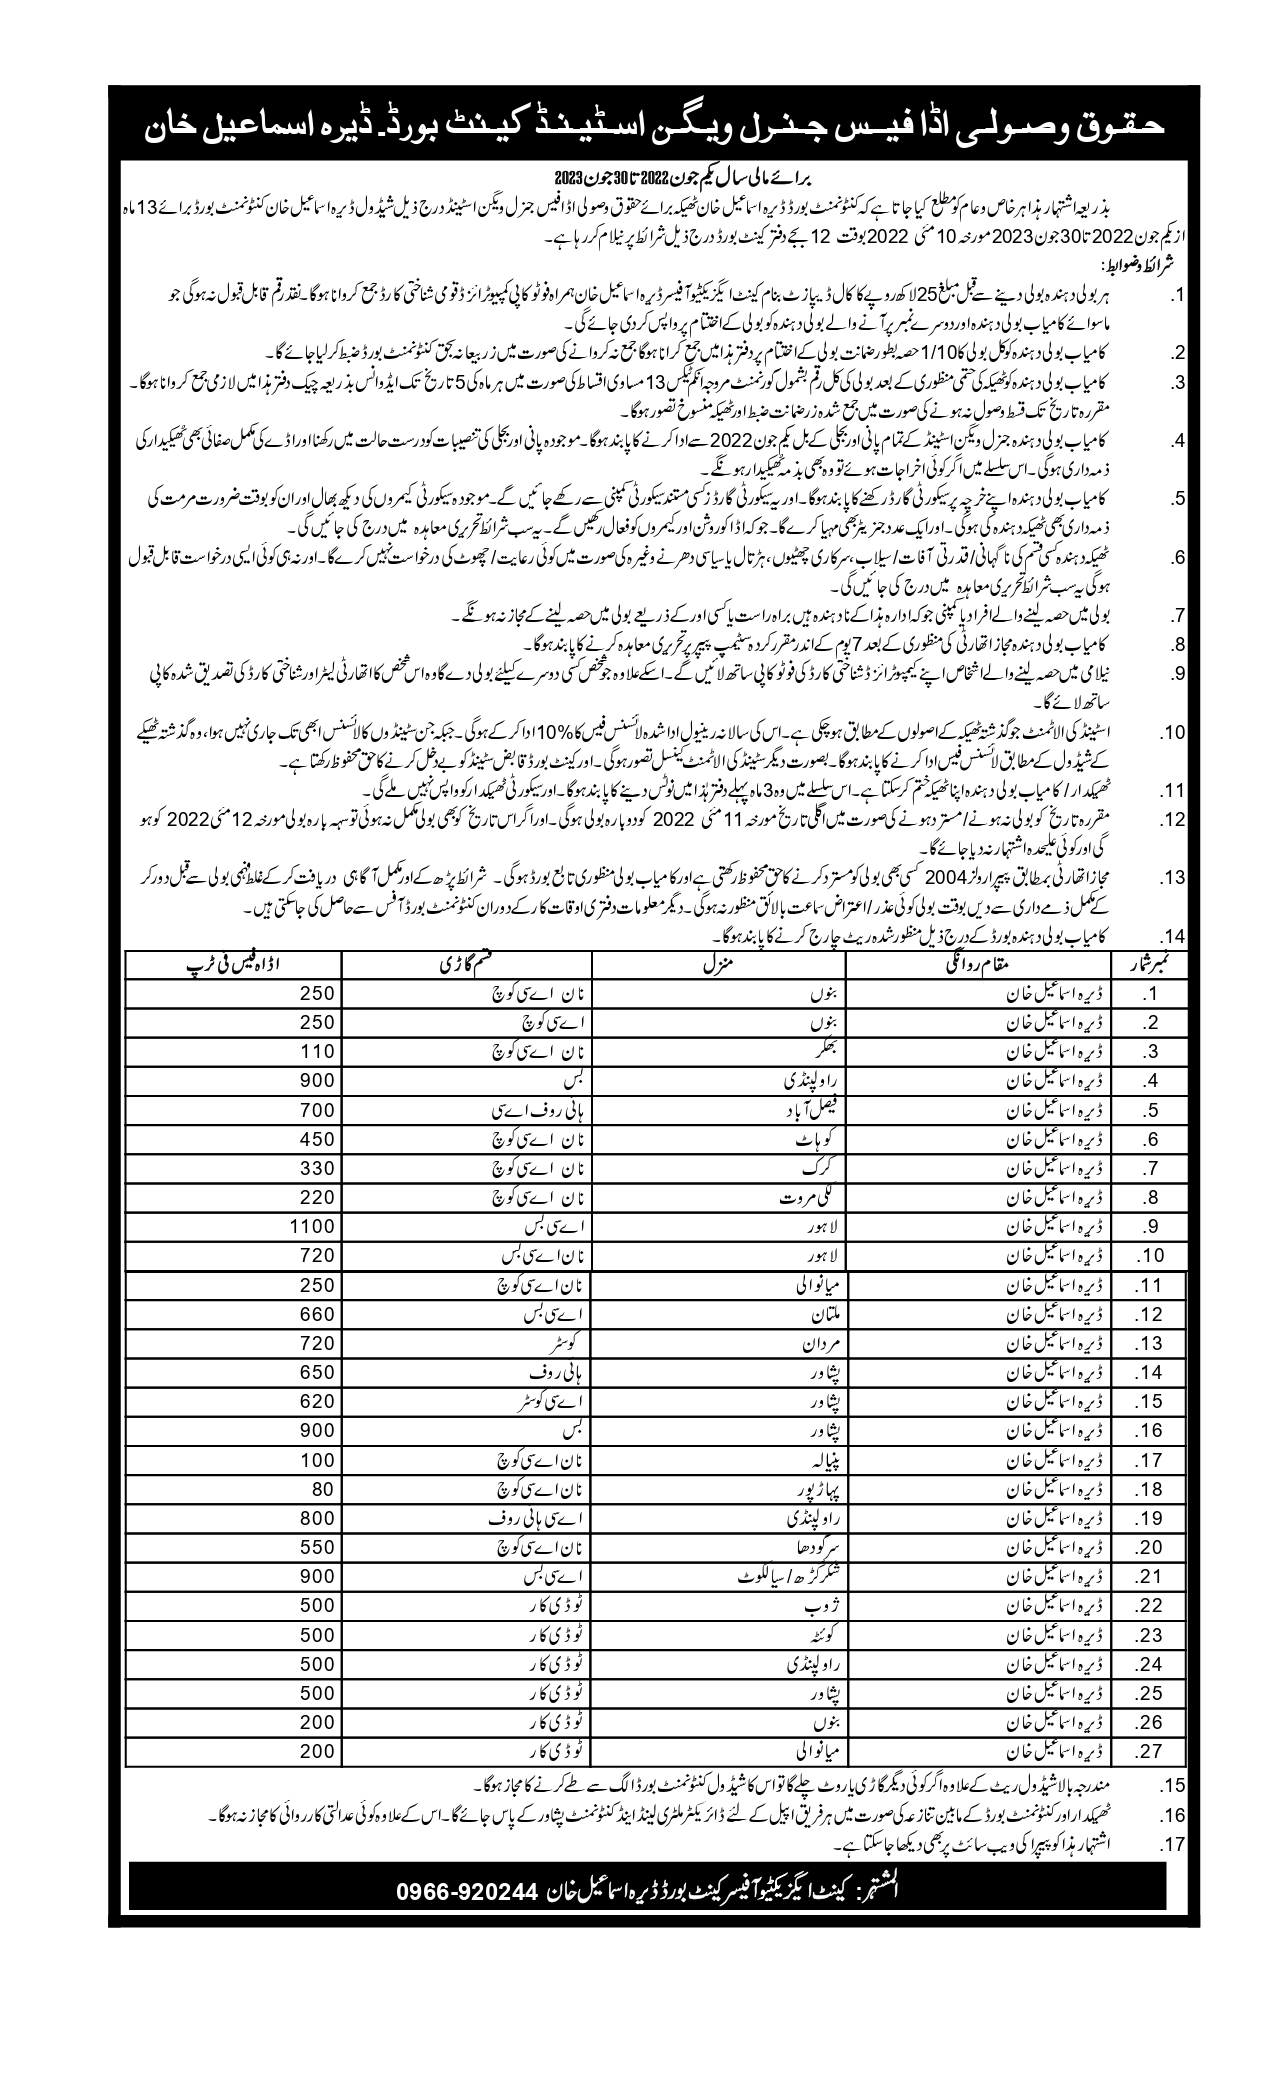 حقوق وصولی اڈا فیس جنرل ویگن اسٹینڈ کینٹ بورڈ۔ڈیرہ اسماعیل خان
برائے مالی سال یکم جون 2022 تا 30 جون 2023
بذریعہ اشتہار ہذا ہر خاص و عام کو مطلع کیا جاتا ہے کہ کنٹونمنٹ بورڈ ڈیرہ اسماعیل خان ٹھیکہ برائے حقوق وصولی اڈا فیس جنرل ویگن اسٹینڈ درج ذیل شیڈول ڈیرہ اسماعیل خان کنٹونمنٹ بورڈ برائے 13 ماہ
از یکم جون 2022 تا 30 جون 2023 مورخہ 10 مئی 2022 بوقت 12 بجے دفتر کینٹ بورڈ درج ذیل شرائط پر نیلام کر رہا ہے۔
شرائط و ضوابط:
1. ہر بولی دہندہ بولی دینے سے قبل مبلغ 25 لاکھ روپے کا کال ڈیپازٹ بنام کینٹ ایگزیکٹیو آفیسر ڈیرہ اسماعیل خان ہمراہ فوٹو کاپی کمپیوٹرائزڈ قومی شناختی کارڈ جمع کروانا ہوگا۔ نقد رقم قابل قبول نہ ہوگی جو
ماسوائے کامیاب بولی دہندہ اور دوسرے نمبر پر آنے والے بولی دہندہ کو بولی کے اختتام پر واپس کر دی جائے گی۔
2. کامیاب بولی دہندہ کو کل بولی کا 1/10 حصہ بطور ضمانت بولی کے اختتام پر دفتر ہذا میں جمع کرانا ہوگا جمع نہ کروانے کی صورت میں زر بیعانہ بحق کنٹونمنٹ بورڈ ضبط کر لیا جائے گا۔
3. کامیاب بولی دہندہ کو ٹھیکہ کی حتمی منظوری کے بعد بولی کی کل رقم بشمول گورنمنٹ مروجہ انکم ٹیکس 13 مساوی اقساط کی صورت میں ہر ماہ کی 5 تاریخ تک ایڈوانس بذریعہ چیک دفتر ہذا میں لازمی جمع کروانا ہوگا۔
مقررہ تاریخ تک قسط وصول نہ ہونے کی صورت میں جمع شدہ زر ضمانت ضبط اور ٹھیکہ منسوخ تصور ہوگا۔
4. کامیاب بولی دہندہ جنرل ویگن اسٹینڈ کے تمام پانی اور بجلی کے بل یکم جون 2022 سے ادا کرنے کا پابند ہوگا۔ موجودہ پانی اور بجلی کی تنصیبات کو درست حالت میں رکھنا اور اڈے کی مکمل صفائی بھی ٹھیکیدار کی
ذمہ داری ہوگی۔ اس سلسلے میں اگر کوئی اخراجات ہوئے تو وہ بھی بذمہ ٹھیکیدار ہونگے۔
5. کامیاب بولی دہندہ اپنے خرچہ پر سیکورٹی گارڈ رکھنے کا پابند ہوگا۔ اور یہ سیکورٹی گارڈز کسی مستند سیکورٹی کمپنی سے رکھے جائیں گے۔ موجودہ سیکورٹی کیمروں کی دیکھ بھال اور ان کو بوقت ضرورت مرمت کی
ذمہ داری بھی ٹھیکہ دہندہ کی ہوگی۔ اور ایک عدد جنریٹر بھی مہیا کرے گا۔ جو کہ اڈا کو روشن اور کیمروں کو فعال رکھیں گے۔ یہ سب شرائط تحریری معاہدہ میں درج کی جائیں گی۔
6. ٹھیکہ دہندہ کسی قسم کی ناگہانی/قدرتی آفات/سیلاب، سرکاری چھٹیوں، ہڑتال یا سیاسی دھرنے وغیرہ کی صورت میں کوئی رعایت/چھوٹ کی درخواست نہیں کرے گا۔ اور نہ ہی کوئی ایسی درخواست قابل قبول
ہوگی یہ سب شرائط تحریری معاہدہ میں درج کی جائیں گی۔
7. بولی میں حصہ لینے والے افراد یا کمپنی جو کہ ادارہ ہذا کے نادہندہ ہیں براہ راست یا کسی اور کے ذریعے بولی میں حصہ لینے کے مجاز نہ ہونگے۔
8. کامیاب بولی دہندہ مجاز اتھارٹی کی منظوری کے بعد 7 یوم کے اندر مقرر کردہ سٹیمپ پیپر پر تحریری معاہدہ کرنے کا پابند ہوگا۔
9. نیلامی میں حصہ لینے والے اشخاص اپنے کمپیوٹرائزڈ شناختی کارڈ کی فوٹو کاپی ساتھ لائیں گے۔ اسکے علاوہ جو شخص کسی دوسرے کیلئے بولی دے گا وہ اس شخص کا اتھارٹی لیٹر اور شناختی کارڈ کی تصدیق شدہ کاپی
ساتھ لائے گا۔
10. اسٹینڈ کی الاٹمنٹ جو گذشتہ ٹھیکہ کے اصولوں کے مطابق ہو چکی ہے۔ اس کی سالانہ رینیول ادا شدہ لائسنس فیس کا 10% ادا کر کے ہوگی۔ جبکہ جن سٹینڈوں کا لائسنس ابھی تک جاری نہیں ہوا، وہ گذشتہ ٹھیکے
کے شیڈول کے مطابق لائسنس فیس ادا کرنے کا پابند ہوگا۔ بصورت دیگر سٹینڈ کی الاٹمنٹ کینسل تصور ہوگی۔ اور کینٹ بورڈ قابض سٹینڈ کو بے دخل کرنے کا حق محفوظ رکھتا ہے۔
11. ٹھیکیدار/کامیاب بولی دہندہ اپنا ٹھیکہ ختم کر سکتا ہے۔ اس سلسلے میں وہ 3 ماہ پہلے دفتر ہذا میں نوٹس دینے کا پابند ہوگا۔ اور سیکورٹی ٹھیکیدار کو واپس نہیں ملے گی۔
12. مقررہ تاریخ کو بولی نہ ہونے/مسترد ہونے کی صورت میں اگلی تاریخ مورخہ 11 مئی 2022 کو دوبارہ بولی ہوگی۔ اور اگر اس تاریخ کو بھی بولی مکمل نہ ہوئی تو سہہ بارہ بولی مورخہ 12 مئی 2022 کو ہو
گی اور کوئی علیحدہ اشتہار نہ دیا جائے گا۔
13. مجاز اتھارٹی بمطابق پیپرا رولز 2004 کسی بھی بولی کو مسترد کرنے کا حق محفوظ رکھتی ہے اور کامیاب بولی منظوری تابع بورڈ ہوگی۔ شرائط پڑھ کے اور مکمل آگاہی دریافت کر کے غلط فہمی بولی سے قبل دور کر
کے مکمل ذمے داری سے دیں بوقت بولی کوئی عذر/اعتراض سماعت بالائق منظور نہ ہوگی۔ دیگر معلومات دفتری اوقات کار کے دوران کنٹونمنٹ بورڈ آفس سے حاصل کی جا سکتی ہیں۔
14. کامیاب بولی دہندہ بورڈ کے درج ذیل منظور شدہ ریٹ چارج کرنے کا پابند ہوگا۔
نمبر شمار مقام روانگی منزل قسم گاڑی اڈاہ فیس فی ٹرپ
1. ڈیرہ اسماعیل خان بنوں نان اے سی کوچ 250
2. ڈیرہ اسماعیل خان بنوں اے سی کوچ 250
3. ڈیرہ اسماعیل خان بھکر نان اے سی کوچ 110
4. ڈیرہ اسماعیل خان راولپنڈی بس 900
5. ڈیرہ اسماعیل خان فیصل آباد ہائی روف اے سی 700
6. ڈیرہ اسماعیل خان کوہاٹ نان اے سی کوچ 450
7. ڈیرہ اسماعیل خان کرک نان اے سی کوچ 330
8. ڈیرہ اسماعیل خان لکی مروت نان اے سی کوچ 220
9. ڈیرہ اسماعیل خان لاہور اے سی بس 1100
10. ڈیرہ اسماعیل خان لاہور نان اے سی بس 720
11. ڈیرہ اسماعیل خان میانوالی نان اے سی کوچ 250
12. ڈیرہ اسماعیل خان ملتان اے سی بس 660
13. ڈیرہ اسماعیل خان مردان کوسٹر 720
14. ڈیرہ اسماعیل خان پشاور ہائی روف 650
15. ڈیرہ اسماعیل خان پشاور اے سی کوسٹر 620
16. ڈیرہ اسماعیل خان پشاور بس 900
17. ڈیرہ اسماعیل خان پنیالہ نان اے سی کوچ 100
18. ڈیرہ اسماعیل خان پہاڑ پور نان اے سی کوچ 80
19. ڈیرہ اسماعیل خان راولپنڈی اے سی ہائی روف 800
20. ڈیرہ اسماعیل خان سرگودھا نان اے سی کوچ 550
21. ڈیرہ اسماعیل خان شکرگڑھ/سیالکوٹ اے سی بس 900
22. ڈیرہ اسماعیل خان ژوب ٹو ڈی کار 500
23. ڈیرہ اسماعیل خان کوئٹہ ٹو ڈی کار 500
24. ڈیرہ اسماعیل خان راولپنڈی ٹو ڈی کار 500
25. ڈیرہ اسماعیل خان پشاور ٹو ڈی کار 500
26. ڈیرہ اسماعیل خان بنوں ٹو ڈی کار 200
27. ڈیرہ اسماعیل خان میانوالی ٹو ڈی کار 200
15. مندرجہ بالا شیڈول ریٹ کے علاوہ اگر کوئی دیگر گاڑی یا روٹ چلے گا تو اس کا شیڈول کنٹونمنٹ بورڈ الگ سے طے کرنے کا مجاز ہوگا۔
16. ٹھیکیدار اور کنٹونمنٹ بورڈ کے مابین تنازعہ کی صورت میں ہر فریق اپیل کے لئے ڈائریکٹر ملٹری لینڈ اینڈ کنٹونمنٹ پشاور کے پاس جائے گا۔ اس کے علاوہ کوئی عدالتی کارروائی کا مجاز نہ ہوگا۔
17. اشتہار ہذا کو پیپرا کی ویب سائٹ پر بھی دیکھا جا سکتا ہے۔
المشتہر: کینٹ ایگزیکٹیو آفیسر کینٹ بورڈ ڈیرہ اسماعیل خان 0966-920244